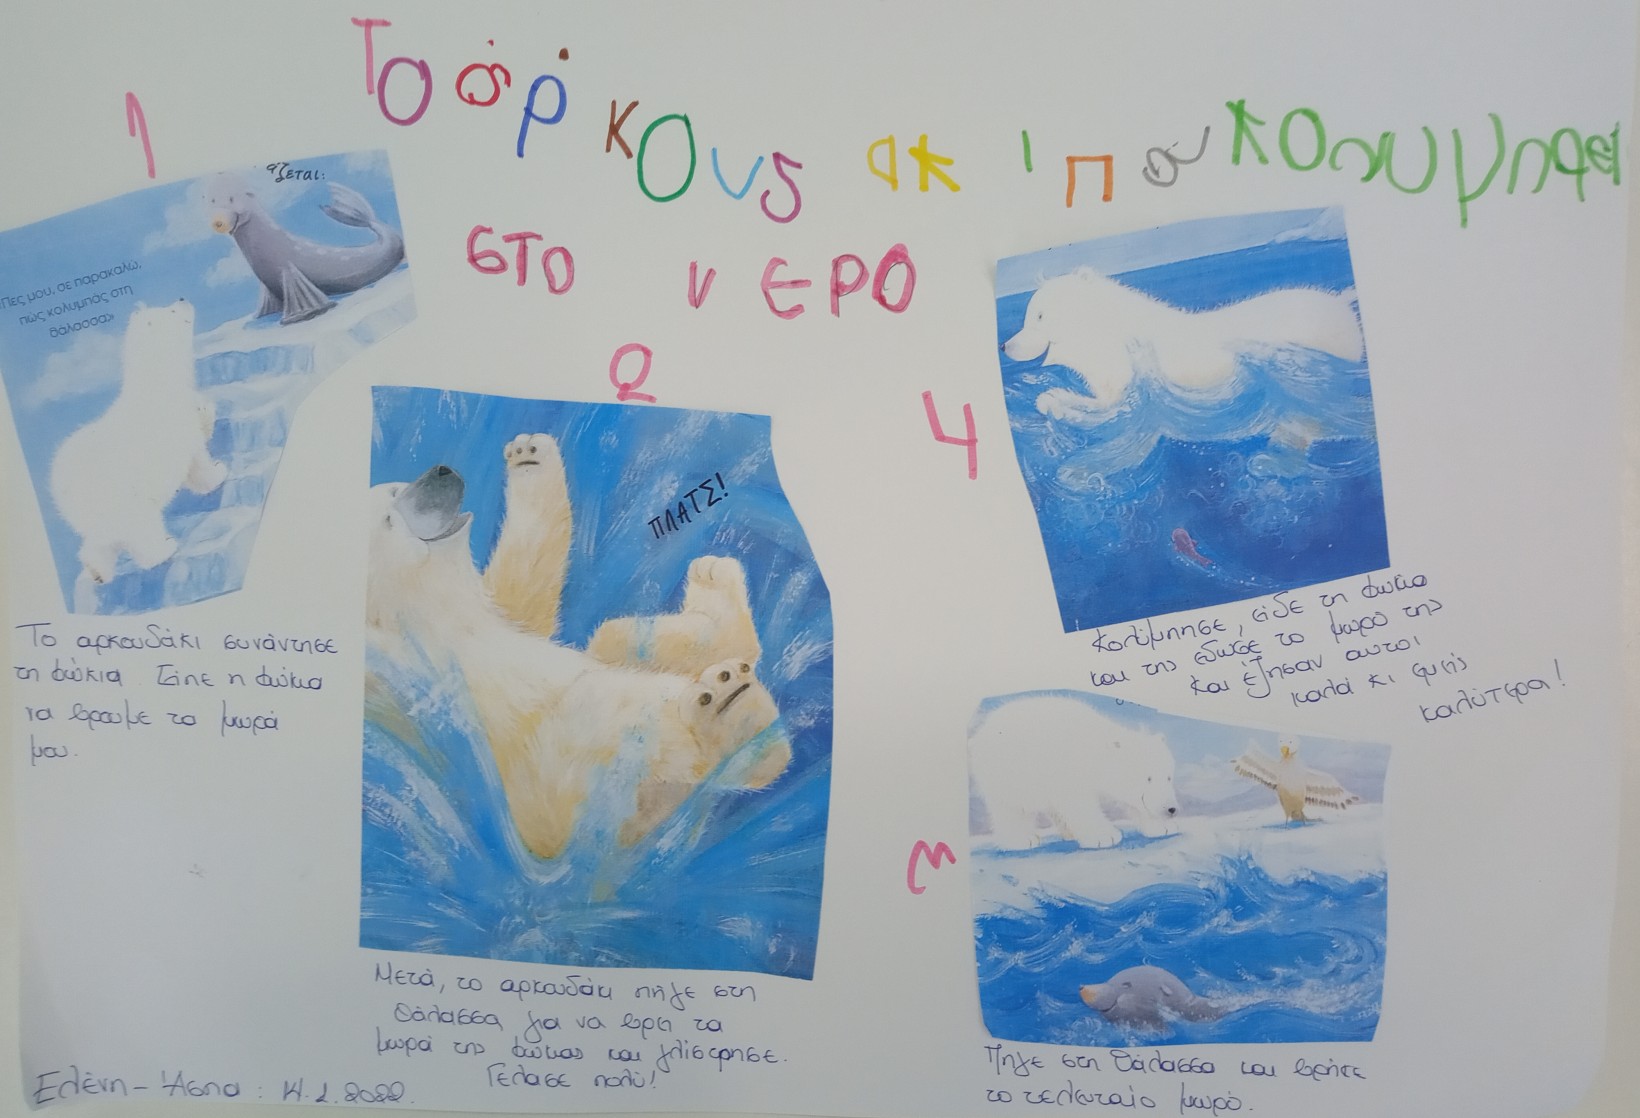 Το άρκουςακι που κολυμπαει
στο νερο
1
άζεται:
«Πες μου, σε παρακαλώ,
πώς κολυμπάς στη
θάλασσα;»
Το αρκουδάκι συνάντησε
τη φώκια. Είπε η φώκια
να βρουμε το μωρά
μου.
2
ΠΛΑΤΣ!
Μετά, το αρκουδάκι πήγε στη
θάλασσα για να βρει τα
μωρά της φώκιας και γλίστρησε.
Γέλασε πολύ!
3
Πήγε στη θάλασσα και βρήκε
το τελευταίο μωρό.
4
Κολύμπησε, είδε τη φώκια
και της έδωσε το μωρό της
και έζησαν αυτοί
καλά κι εμείς
καλύτερα!
Ελένη - Άσπα: 14.2.2022.